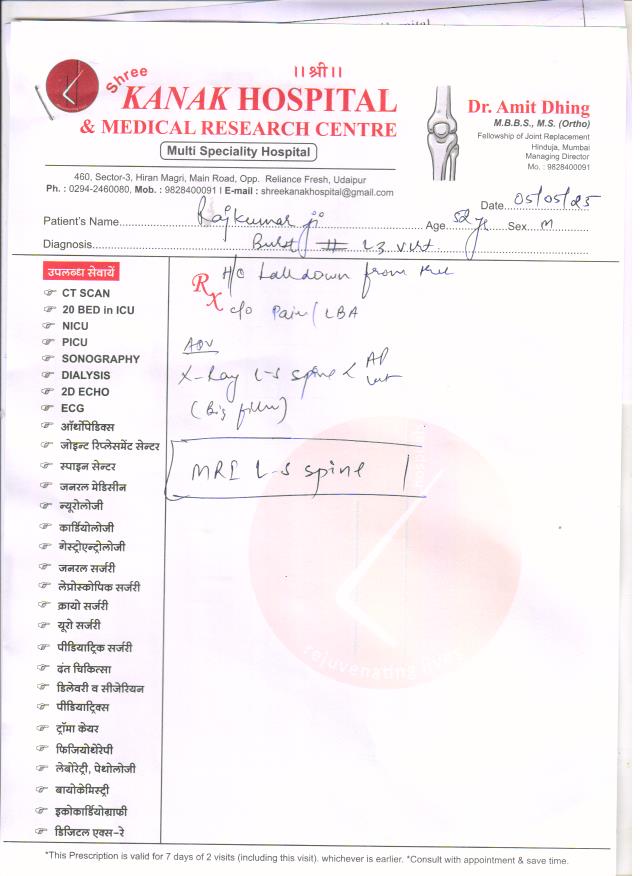 ।। श्री ।।
Shree
KANAK HOSPITAL
& MEDICAL RESEARCH CENTRE
Multi Speciality Hospital
460, Sector-3, Hiran Magri, Main Road, Opp. Reliance Fresh, Udaipur
Ph. : 0294-2460080, Mob. : 9828400091 I E-mail : shreekanakhospital@gmail.com
Dr. Amit Dhing
M.B.B.S., M.S. (Ortho)
Fellowship of Joint Replacement
Hinduja, Mumbai
Managing Director
Mo. : 9828400091
Date 05/05/25
Patient's Name Rajkumar ji Age 52 yr Sex M
Diagnosis Burst # L3 vert.
उपलब्ध सेवायें
CT SCAN
20 BED in ICU
NICU
PICU
SONOGRAPHY
DIALYSIS
2D ECHO
ECG
ऑर्थोपेडिक्स
जोइन्ट रिप्लेसमेंट सेन्टर
स्पाइन सेन्टर
जनरल मेडिसीन
न्यूरोलोजी
कार्डियोलोजी
गेस्ट्रोएन्ट्रोलोजी
जनरल सर्जरी
लेप्रोस्कोपिक सर्जरी
क्रायो सर्जरी
यूरो सर्जरी
पीडियाट्रिक सर्जरी
दंत चिकित्सा
डिलेवरी व सीजेरियन
पीडियाट्रिक्स
ट्रॉमा केयर
फिजियोथेरेपी
लेबोरेट्री, पेथोलोजी
बायोकेमिस्ट्री
इकोकार्डियोग्राफी
डिजिटल एक्स-रे
Rx
H/O falldown from
c/o Pain / LBA
ADV
X-Ray L-S spine < AP
Lat
(Big film)
MRI L-S spine
rejuvenating lives
*This Prescription is valid for 7 days of 2 visits (including this visit). whichever is earlier. *Consult with appointment & save time.